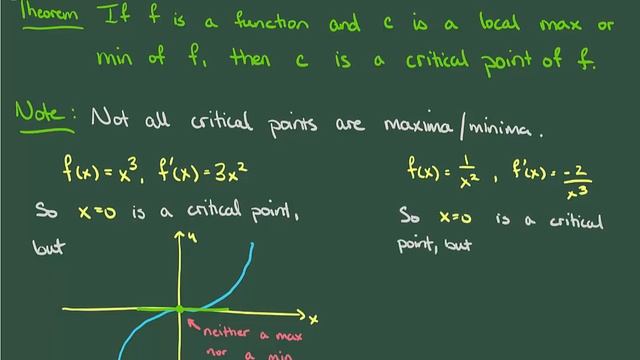 Theorem If f is a function and c is a local max or
min of f, then c is a critical point of f.
Note: Not all critical points are maxima/minima.
f(x) = x³, f'(x) = 3x²
So x=0 is a critical point,
but
y
x
neither a max
nor a min
f(x) = 1/x², f'(x) = -2/x³
So x=0 is a critical
point, but